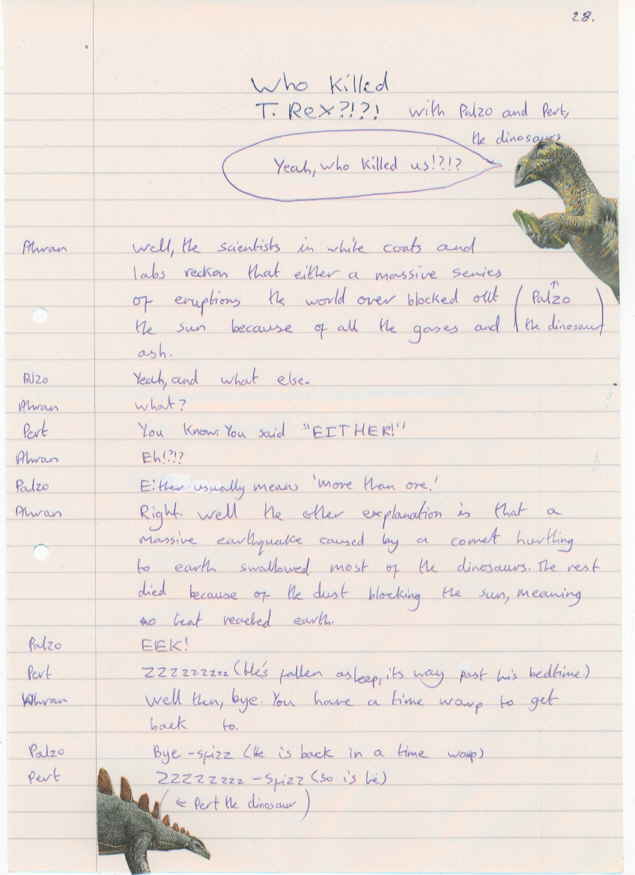 28.
Who Killed
T. Rex?!?! with Palzo and Pert,
the dinosaurs
Yeah, who killed us!?!?
Ahvan Well, the scientists in white coats and
labs reckon that either a massive series
of eruptions the world over blocked out
(Palzo
the dinosaur)
the sun because of all the gasses and
ash.
Palzo Yeah, and what else.
Ahvan What?
Pert You know. You said "EITHER!"
Ahvan Eh!?!?
Palzo Either usually means 'more than one.'
Ahvan Right. Well the other explanation is that a
massive earthquake caused by a comet hurtling
to earth swallowed most of the dinosaurs. The rest
died because of the dust blocking the sun, meaning
no heat reached earth.
Palzo EEK!
Pert ZZZZZZZZZ (He's fallen asleep, its way past his bedtime.)
Ahvan Well then, bye. You have a time warp to get
back to.
Palzo Bye -Spizz (He is back in a time warp)
Pert ZZZZZZZZ -Spizz (so is he)
(← Pert the dinosaur)